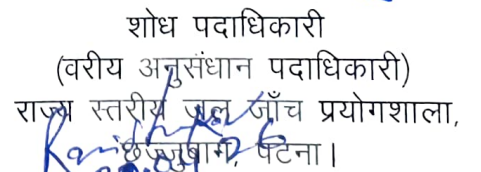 शोध पदाधिकारी
(वरीय अनुसंधान पदाधिकारी)
राज्य स्तरीय जल जाँच प्रयोगशाला,
छज्जुबाग, पटना।